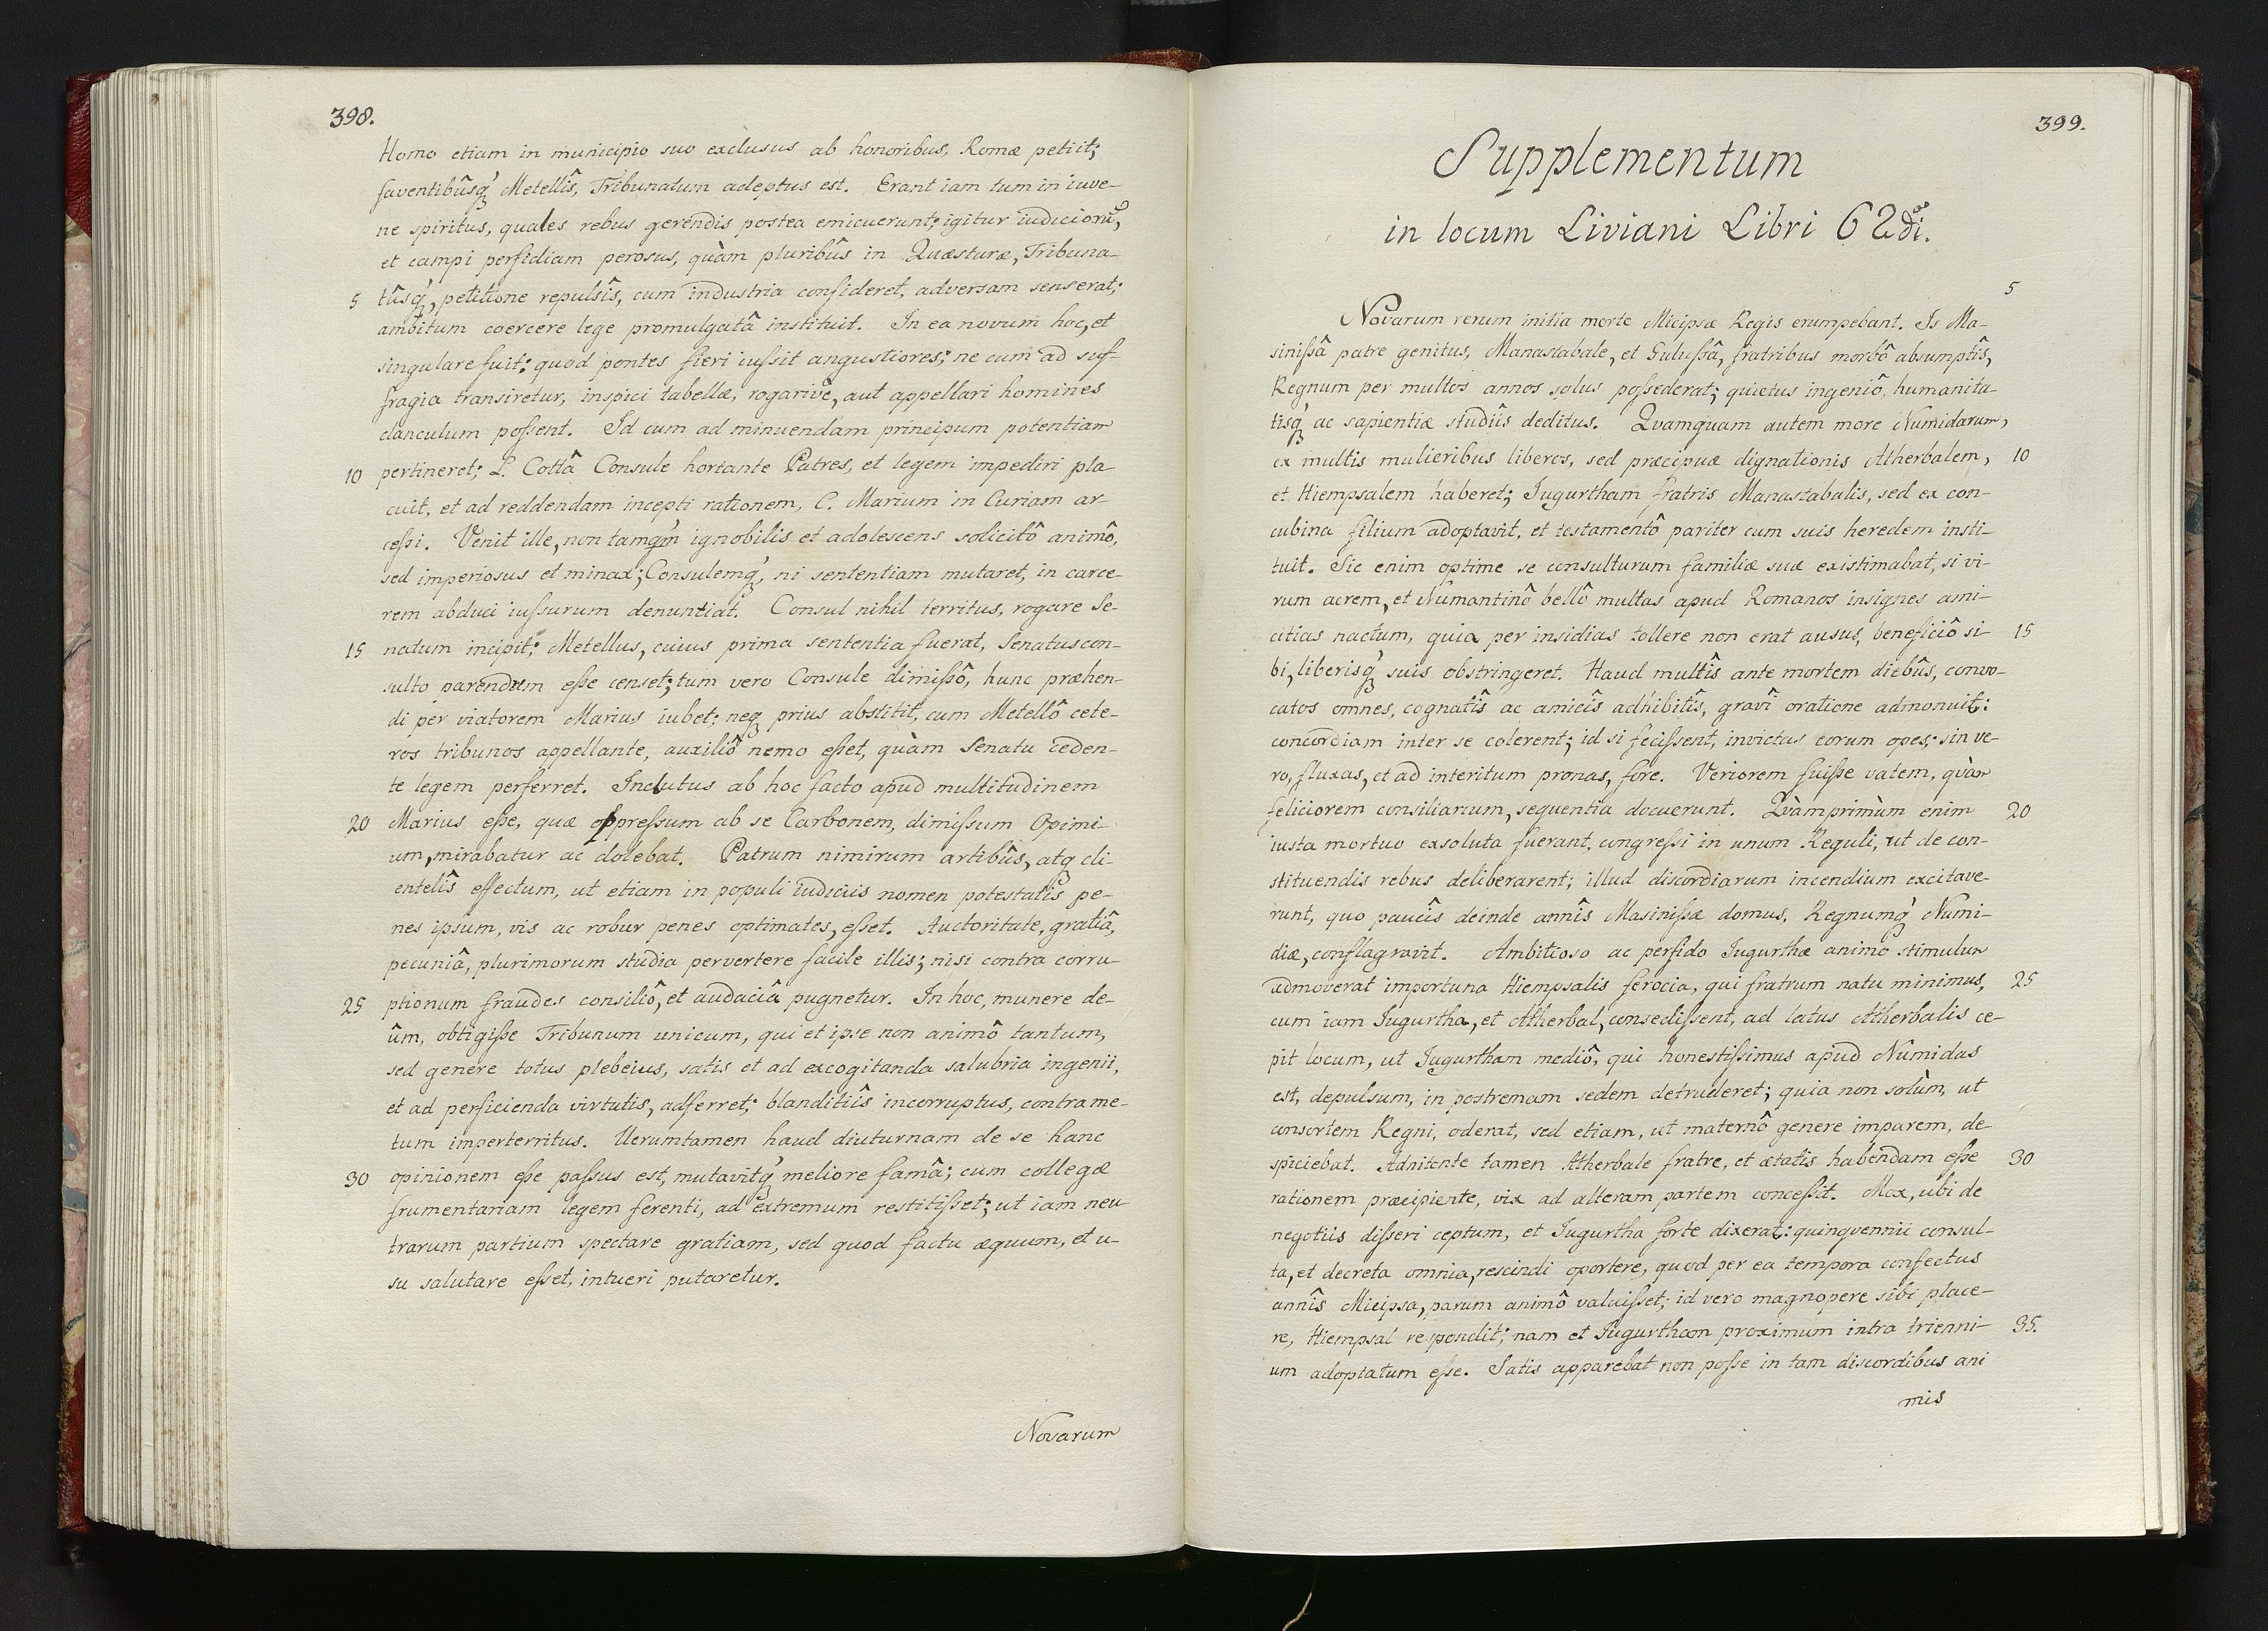 398.
Homo etiam in municipio suo exclusus ab honoribus, Romæ petiit;
faventibûsq́ꝫ Metellîs, Tribunatum adeptus est. Erant iam tum in iuve-
ne spiritus, quales rebus gerendis postea emicuerunt; igitur iudicioru᷑,
et campi perfidiam perosus, quàm pluribûs in Quæsturæ, Tribuna-
5 tûsq́ꝫ, petitione repulsîs, cum industria confideret, adversam senserat;
ambitum coercere lege promulgatâ instituit. In ea novum hoc, et
singulare fuit: quod pontes fieri iußit angustiores; ne cum ad suf-
fragia transiretur, inspici tabellæ, rogarive, aut appellari homines
clanculum poßent. Id cum ad minuendam principum potentiam
10 pertineret; L. Cottâ Consule hortante Patres, et legem impediri pla-
cuit, et ad reddendam incepti rationem, C. Marium in Curiam ar-
ceßi. Venit ille, non tamqm̃ ignobilis et adolescens solicitô animô,
sed imperiosus et minax; Consulemq́ꝫ, ni sententiam mutaret, in carce-
rem abduci iußurum denuntiat. Consul nihil territus, rogare Se-
15 natum incipit; Metellus, cuius prima sententia fuerat, Senatuscon-
sulto parendum eße censet; tum vero Consule dimißô, hunc præhen-
di per viatorem Marius iubet; neqꝫ prius abstitit, cum Metellô cete-
ros tribunos appellante, auxiliô nemo eßet, quàm Senatu ceden-
te legem perferret. Inclutus ab hoc facto apud multitudinem
20 Marius eße, quæ oppreßum ab se Carbonem, dimißum Opimi-
um, mirabatur ac dolebat. Patrum nimirum artibûs, atqꝫ cli-
entelîs effectum, ut etiam in populi iudiciis nomen potestatis pe-
nes ipsum, vis ac robur penes optimates, eßet. Auctoritate, gratiâ,
pecuniâ, plurimorum studia pervertere facile illis; nisi contra corru-
25 ptionum fraudes consiliô, et audaciâ pugnetur. In hoc, munere de-
ûm, obtigiße Tribunum unicum, qui et ipse non animô tantum,
sed genere totus plebeius, satis et ad excogitanda salubria ingenii,
et ad perficienda virtutis, adferret; blanditiîs incorruptus, contra me-
tum imperterritus. Verumtamen haud diuturnam de se hanc
30 opinionem eße paßus est, mutavitq́ꝫ meliore famâ; cum collegæ
frumentariam legem ferenti, ad extremum restitißet; ut iam neu
trarum partium spectare gratiam, sed quod factu æquum, et u-
su salutare eßet, intueri putaretur.
Novarum
399.
Supplementum
in locum Liviani Libri 62di.
5
Novarum rerum initia morte Micipsæ Regis erumpebant. Is Ma-
sinißâ patre genitus, Manastabale, et Gulußâ, fratribus morbô absumptîs,
Regnum per multos annos solus poßederat; quietus ingeniô, humanita-
tisq́ꝫ ac sapientiæ studiîs deditus. Quamquam autem more Numidarum,
ex multis mulieribus liberos, sed præcipuæ dignationis Atherbalem, 10
et Hiempsalem haberet; Iugurtham fratris Manastabalis, sed ex con-
cubina filium adoptavit, et testamentô pariter cum suis heredem insti-
tuit. Sic enim optime se consulturum familiæ suæ existimabat, si vi-
rum acrem, et Numantinô bellô multas apud Romanos insignes ami-
citias nactum, quia per insidias tollere non erat ausus, beneficiô si- 15
bi, liberisq́ꝫ suis obstringeret. Haud multîs ante mortem diebûs, convo-
catos omnes, cognatîs ac amicîs adhibitîs, gravî oratione admonuit:
concordiam inter se colerent; id si fecißent, invictas eorum opes; sin ve-
ro, fluxas, et ad interitum pronas, fore. Veriorem fuiße vatem, quàm
feliciorem consiliarium, sequentia docuerunt. Quàmprimùm enim 20
iusta mortuo exsoluta fuerant, congreßi in unum Reguli, ut de con-
stituendis rebus deliberarent; illud discordiarum incendium excitave-
runt, quo paucîs deinde annîs Masinißæ domus, Regnumq́ꝫ Numi-
diæ, conflagravit. Ambitioso ac perfido Iugurthæ animo stimulum
admoverat importuna Hiempsalis ferocia, qui fratrum natu minimus, 25
cum iam Iugurtha, et Atherbal, consedißent, ad latus Atherbalis ce-
pit locum, ut Iugurtham mediô, qui honestißimus apud Numidas
est, depulsum, in postremam sedem detruderet; quia non solùm, ut
consortem Regni, oderat, sed etiam, ut maternô genere imparem, de-
spiciebat. Adnitente tamen Atherbale fratre, et ætatis habendam eße 30
rationem præcipiente, vix ad alteram partem conceßit. Mox, ubi de
negotiis dißeri ceptum, et Iugurtha forte dixerat: quinquennii consul-
ta, et decreta omnia, rescindi oportere, quod per ea tempora confectus
annîs Micipsa, parum animô valuißet; id vero magnopere sibi place-
re, Hiempsal respondit; nam et Iugurtham proximum intra trienni- 35.
um adoptatum eße. Satis apparebat non poße in tam discordibus ani
mis